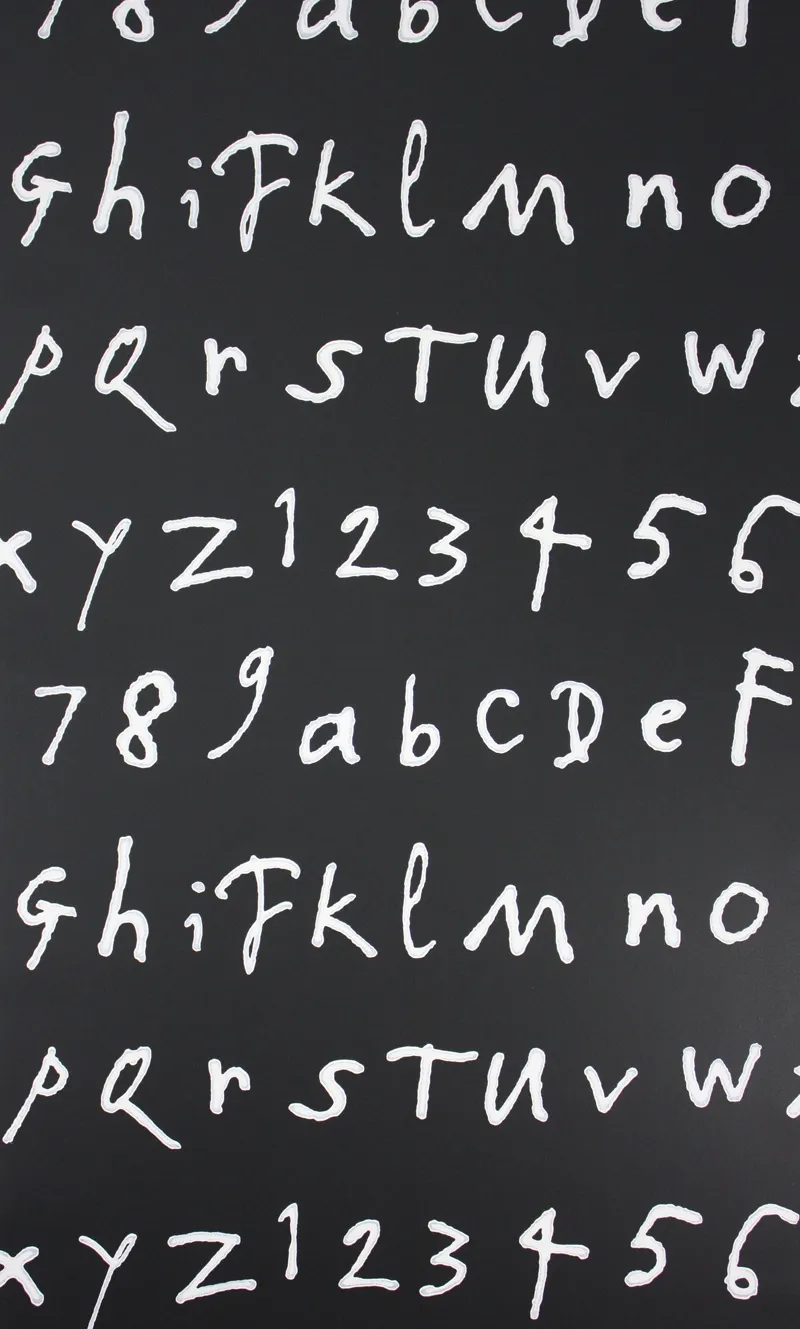 7 8 9 a b c D e F
G h i J k l M n o
p Q r s T U v w x
x y z 1 2 3 4 5 6
7 8 9 a b c D e F
G h i J k l M n o
p Q r s T U v w x
x y z 1 2 3 4 5 6